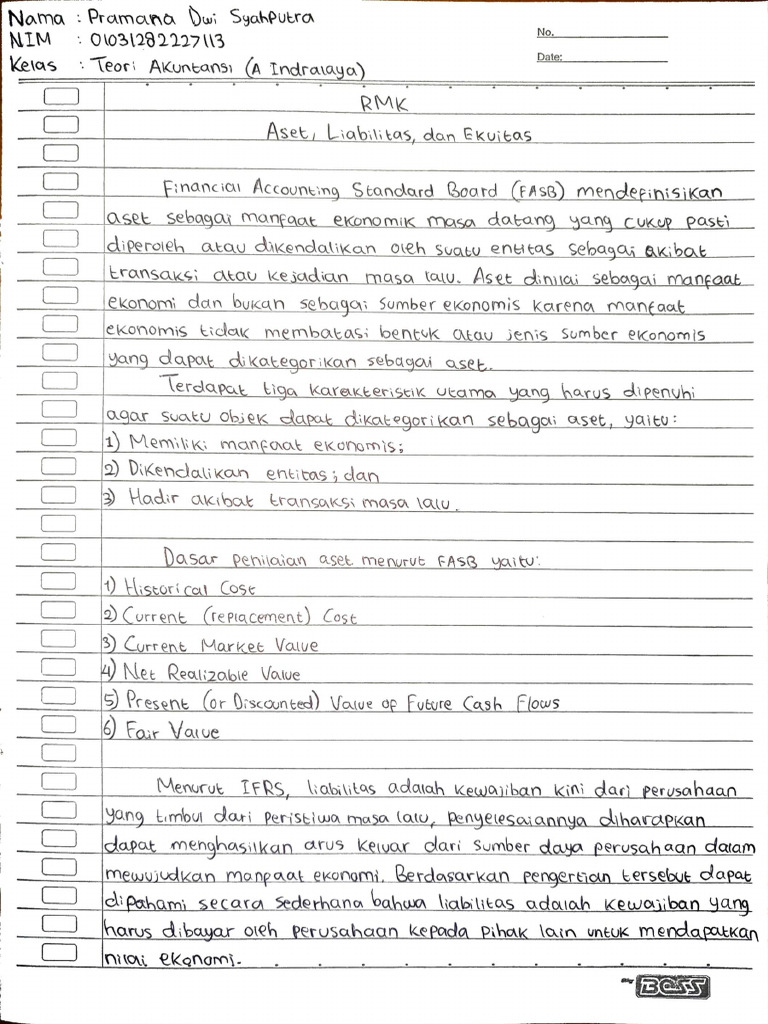 Nama : Pramana Dwi Syahputra
NIM : 01031282227113
Kelas : Teori Akuntansi (A Indralaya)
No.
Date:
RMK
Aset, Liabilitas, dan Ekuitas
Financial Accounting Standard Board (FASB) mendefinisikan
aset sebagai manfaat ekonomik masa datang yang cukup pasti
diperoleh atau dikendalikan oleh suatu entitas sebagai akibat
transaksi atau kejadian masa lalu. Aset dinilai sebagai manfaat
ekonomi dan bukan sebagai sumber ekonomis karena manfaat
ekonomis tidak membatasi bentuk atau jenis sumber ekonomis
yang dapat dikategorikan sebagai aset.
Terdapat tiga karakteristik utama yang harus dipenuhi
agar suatu objek dapat dikategorikan sebagai aset, yaitu:
1) Memiliki manfaat ekonomis;
2) Dikendalikan entitas; dan
3) Hadir akibat transaksi masa lalu.
Dasar penilaian aset menurut FASB yaitu:
1) Historical Cost
2) Current (replacement) Cost
3) Current Market Value
4) Net Realizable Value
5) Present (or Discounted) Value of Future Cash Flows
6) Fair Value
Menurut IFRS, liabilitas adalah kewajiban kini dari perusahaan
yang timbul dari peristiwa masa lalu, penyelesaiannya diharapkan
dapat menghasilkan arus keluar dari sumber daya perusahaan dalam
mewujudkan manpaat ekonomi. Berdasarkan pengertian tersebut dapat
dipahami secara sederhana bahwa liabilitas adalah kewajiban yang
harus dibayar oleh perusahaan kepada pihak lain untuk mendapatkan
nilai ekonomi.
my BOSS